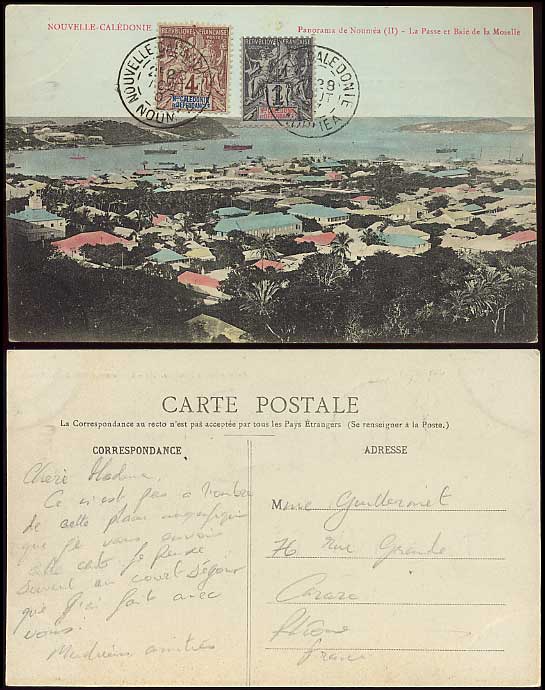 NOUVELLE-CALÉDONIE
Panorama de Nouméa (II) - La Passe et Baie de la Moselle
RÉPUBLIQUE FRANÇAISE
4
Nlle CALEDONIE ET DÉPENDANCES
1
NOUVELLE-CALÉDONIE
NOUMEA
CARTE POSTALE
La Correspondance au recto n'est pas acceptée par tous les Pays Étrangers (Se renseigner à la Poste.)
CORRESPONDANCE
ADRESSE
Chère Madame,
Ce n'est pas à l'ombre
de cette
que je vous envoie
cette carte. Je pense
souvent au court séjour
que j'ai fait avec
vous.
amitiés
Mme
76 rue Grande
Rhône
France